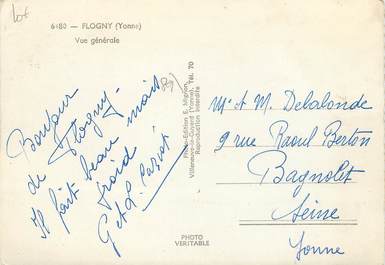 lot
6180 — FLOGNY (Yonne)
Vue générale
89
Bonjour
de Flogny.
Il fait beau mais
froid
G et L. Pariot
Photo-Edition E. Mignon
Villeneuve-la-Guyard (Yonne). Tél. 70
Reproduction interdite
PHOTO
VERITABLE
Mr et M. Delalonde
9 rue Raoul Berton
Bagnolet
Seine
Yonne